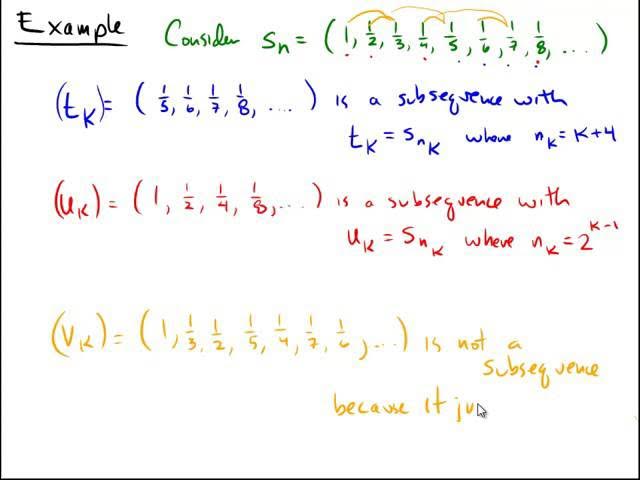 Example Consider Sn = (1, 1/2, 1/3, 1/4, 1/5, 1/6, 1/7, 1/8, ...)
(tK) = (1/5, 1/6, 1/7, 1/8, ....) is a subsequence with
tK = SnK where nK = K+4
(uK) = (1, 1/2, 1/4, 1/8, ...) is a subsequence with
uK = SnK where nK = 2^(K-1)
(VK) = (1, 1/3, 1/2, 1/5, 1/4, 1/7, 1/6, ...) is not a
subsequence
because it ju